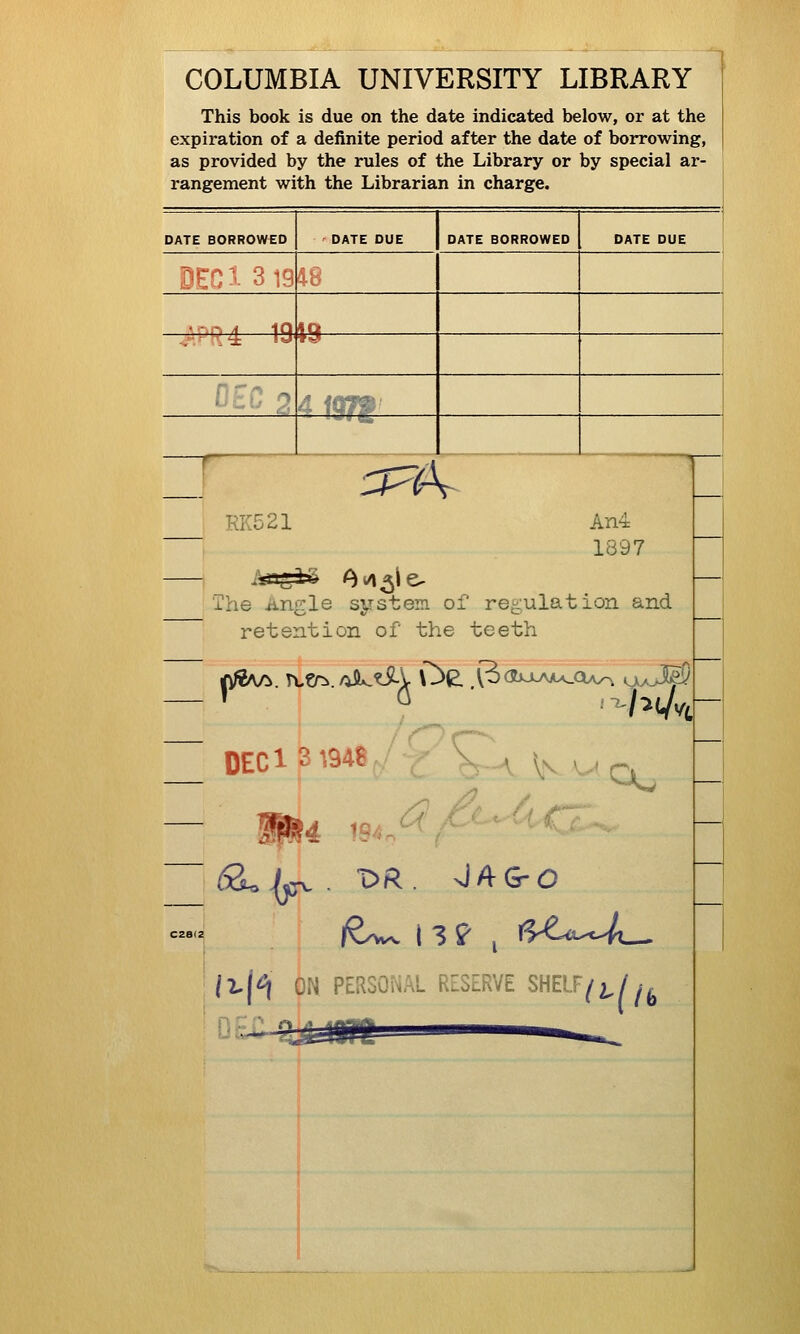 COLUMBIA UNIVERSITY LIBRARY
This book is due on the date indicated below, or at the
expiration of a definite period after the date of borrowing,
as provided by the rules of the Library or by special ar-
rangement with the Librarian in charge.
DATE BORROWED DATE DUE DATE BORROWED DATE DUE
DEC 1 3 1948
APR 4 1949
DEC 2 4 1972
RK521 An4
1897
Angle
The Angle system of regulation and
retention of the teeth
pers. res. shelf Dr.
DEC 1 3 1948
4 194
DR. JAGO
Rm 138,
C28(2
12/9 ON PERSONAL RESERVE SHELF 12/16
DEC 2 4 1972